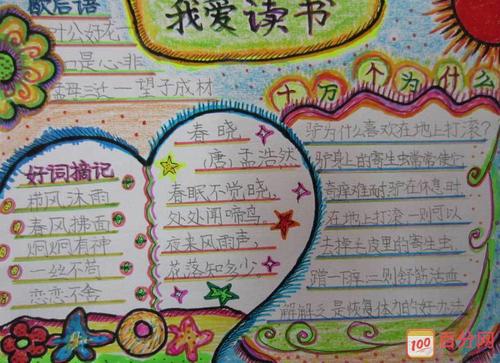 我爱读书
歇后语
叶公好龙
口是心非
孟母三迁一望子成材
好词摘记
栉风沐雨
春风拂面
炯炯有神
一丝不苟
恋恋不舍
春晓
唐,孟浩然
春眠不觉晓,
处处闻啼鸟,
夜来风雨声,
花落知多少。
十万个为什么
驴为什么喜欢在地上打滚?
驴身上的寄生虫常常使它
奇痒难耐驴在休息时
在地上打滚一则可以
去掉土皮里的寄生虫,
蹭一下痒,二则舒筋活血
解解乏是恢复体力的好办法
100 百分网